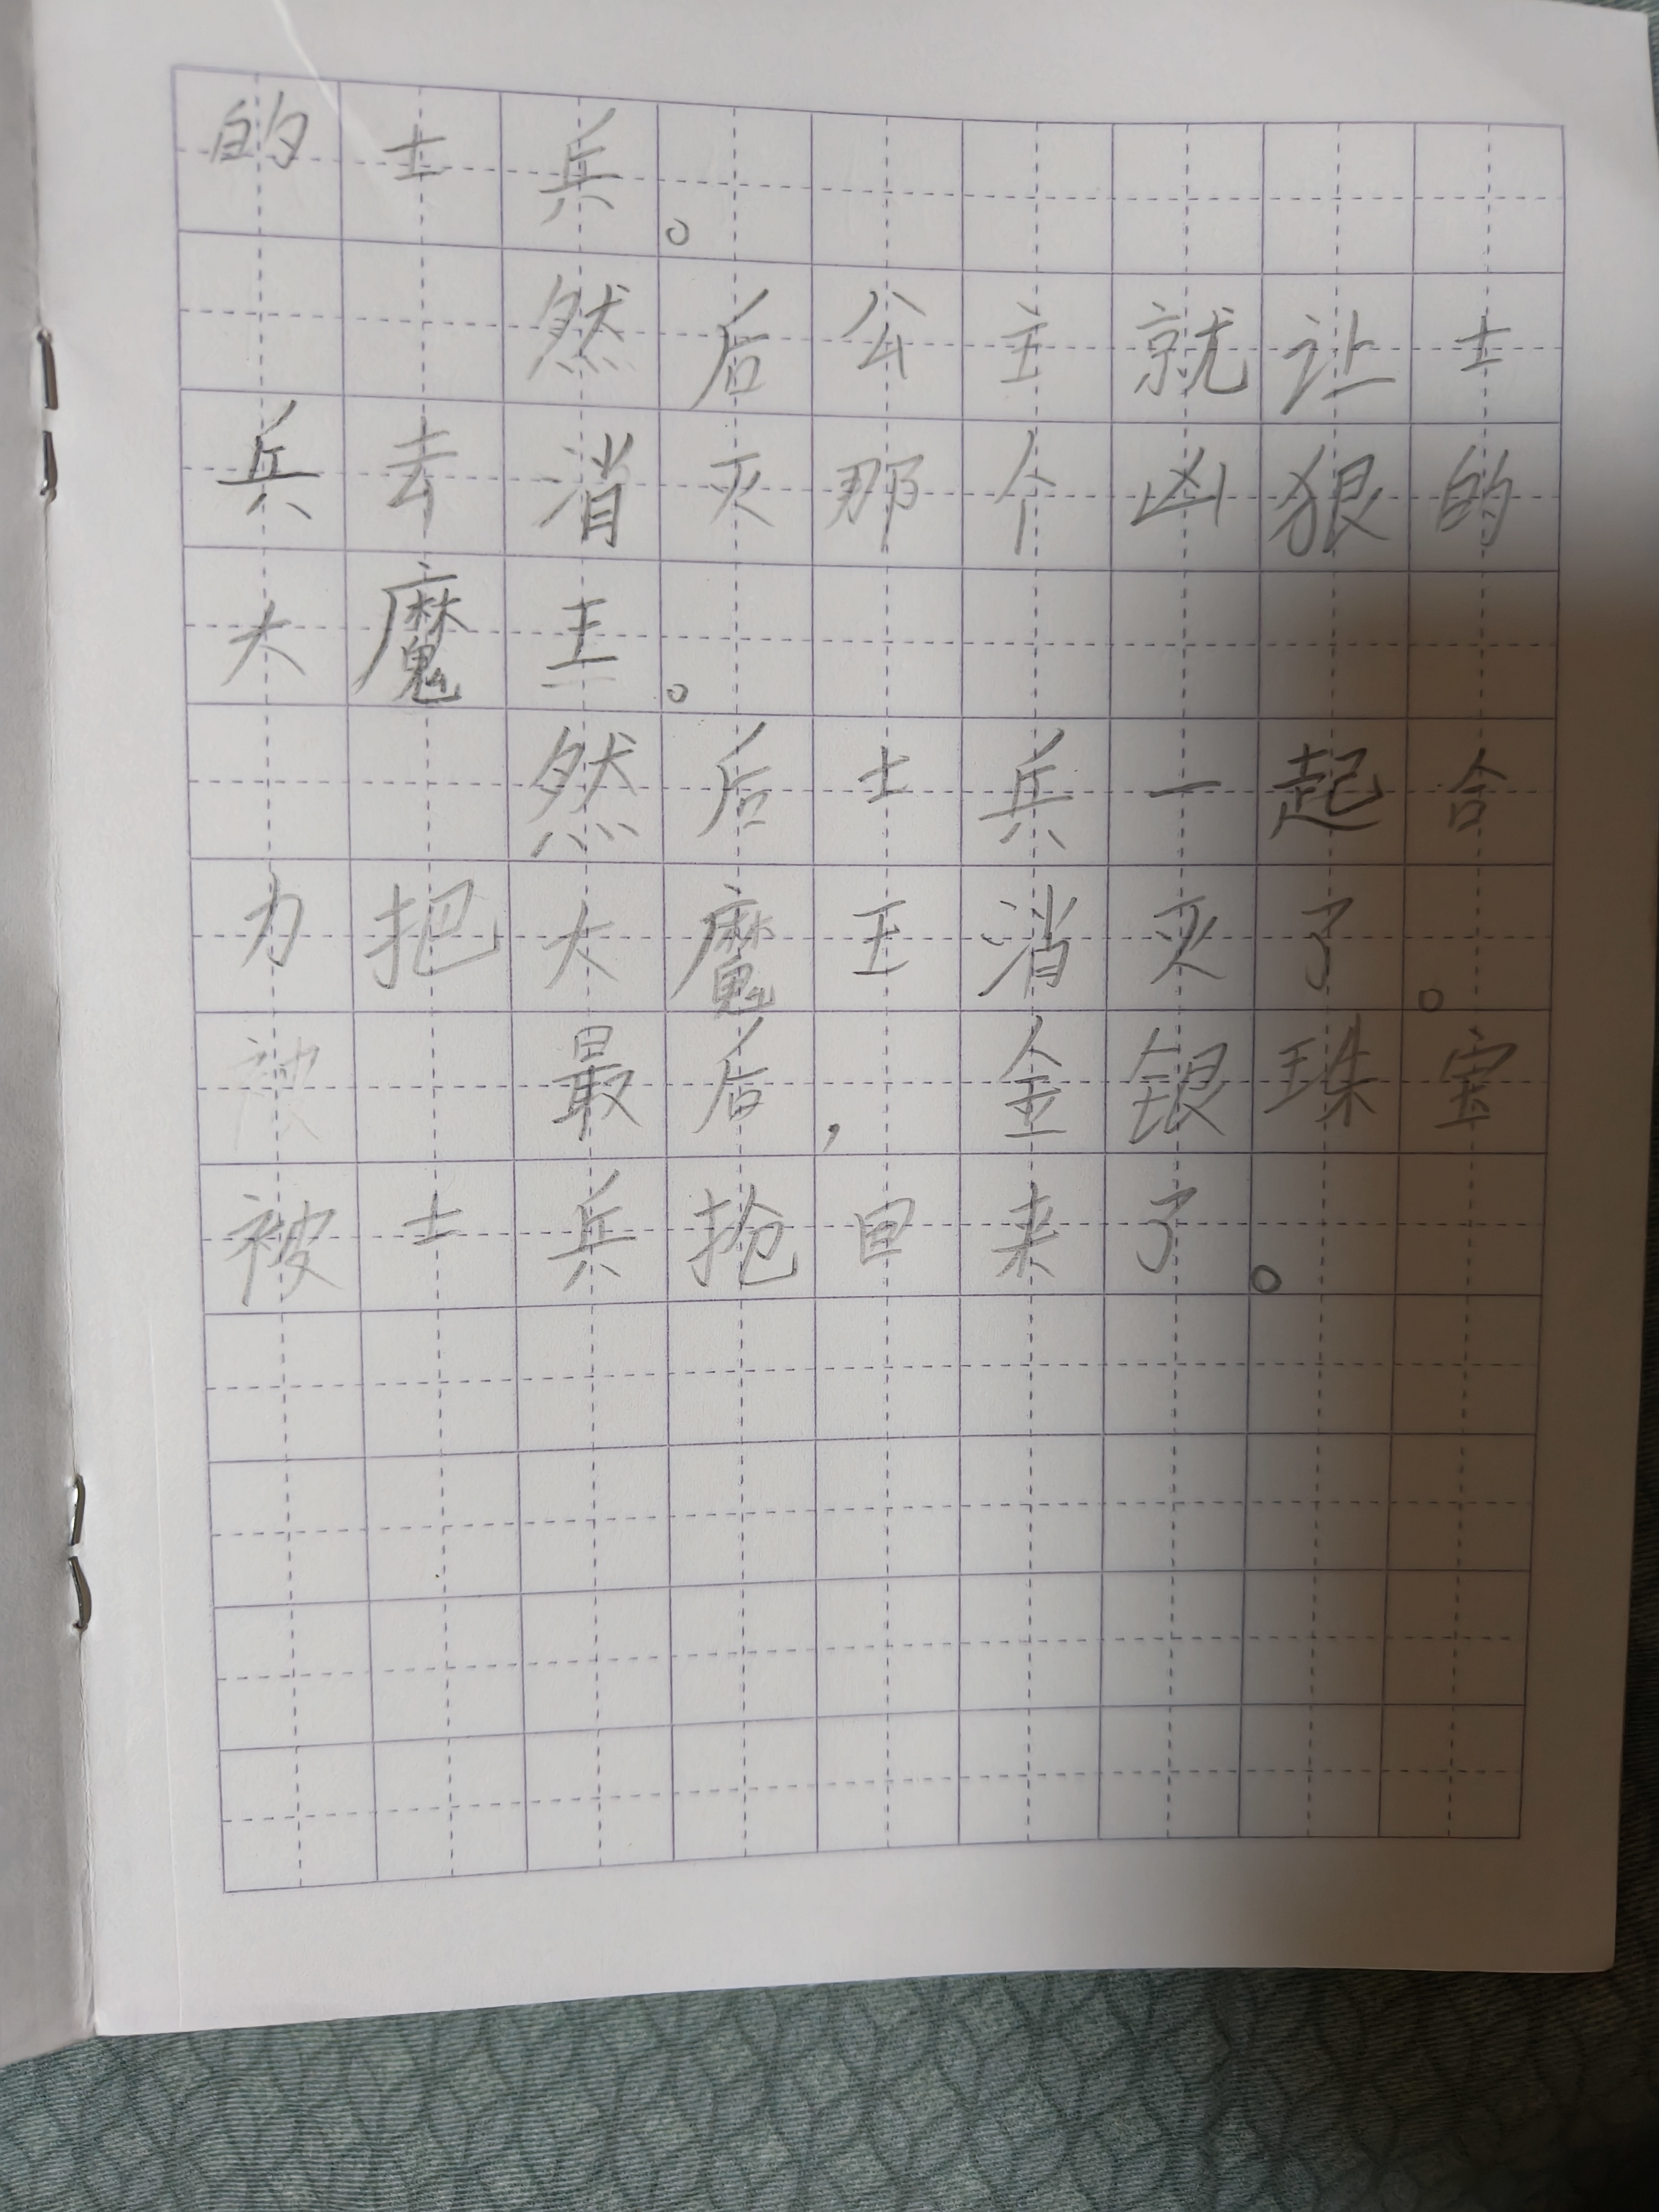 的士兵。
然后公主就让士
兵去消灭那个凶狠的
大魔王。
然后士兵一起合
力把大魔王消灭了。
被 最后，金银珠宝
被士兵抢回来了。